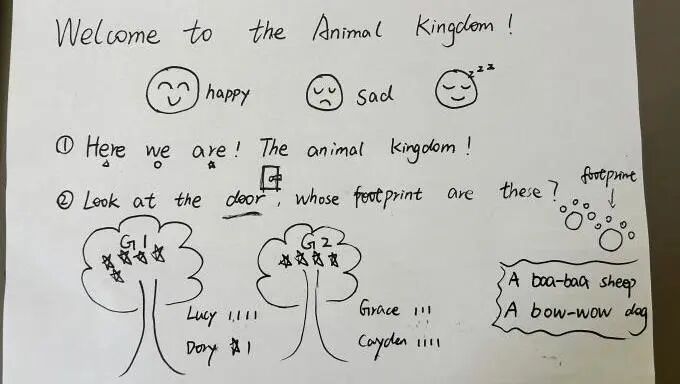 Welcome to the Animal Kingdom!
happy sad zzz
① Here we are! The animal kingdom!
② Look at the door, whose footprint are these?
footprint
G1 G2
A baa-baa sheep
A bow-wow dog
Lucy Grace
Dory Cayden